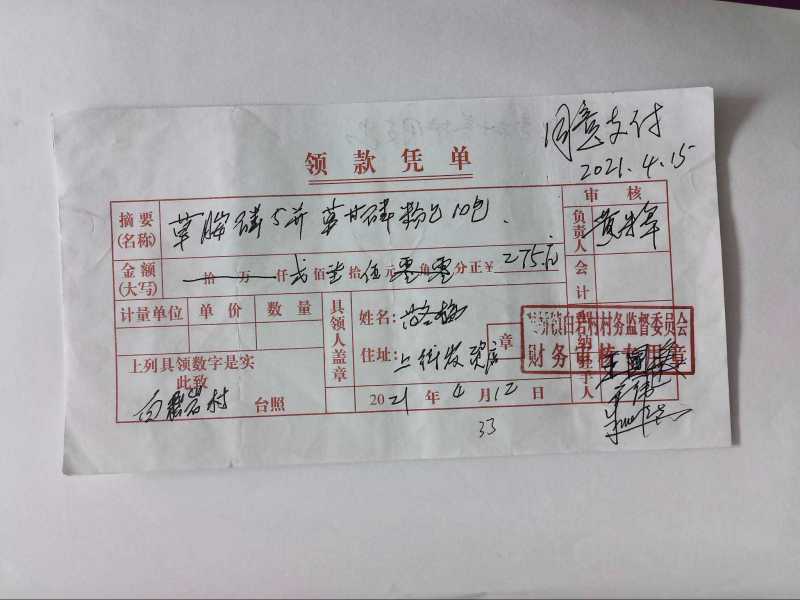 同意支付
2021.4.15
领款凭单
摘要(名称) 草胺磷5瓶 草甘磷粉包10包.
审核
负责人
金额(大写) 拾 万 仟 贰佰 柒拾 伍元 零角 零分正¥ 275.元
会计
计量单位 单价 数量
具领人盖章
姓名:
住址: 上街农资店
章
上列具领数字是实
此致
白岩村 台照
2021年4月12日
村务监督委员会
财务审核专用章
33